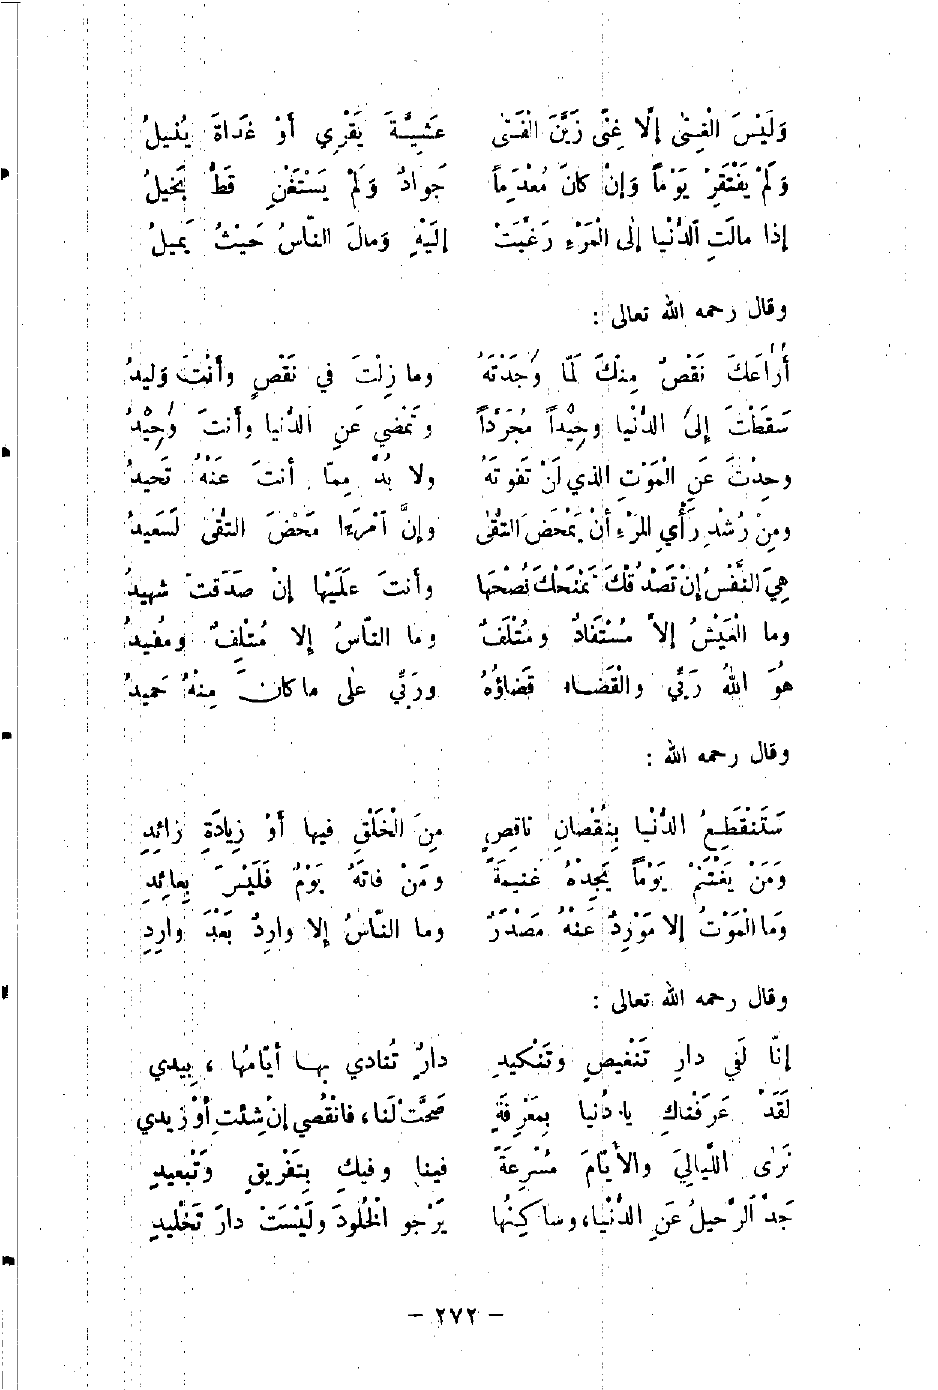 وَلَيْسَ الْغِنٰى إلّا غِنًى زَيَّنَ الْفَتٰى عَشِيَّةَ يَقْرِي أوْ غَداةَ يُنيلُ
وَلَمْ يَفْتَقِرْ يَوْماً وَإنْ كانَ مُعْدَماً جَوادٌ وَلَمْ يَسْتَغْنِ قَطُّ بَخيلُ
إذا مالَتِ ٱلدُّنْيا إلى الْمَرْءِ رَغَّبَتْ إلَيْهِ وَمالَ النّاسُ حَيْثُ يَميلُ
وقال رحمه الله تعالى :
أَراعَكَ نَقْصٌ مِنْكَ لَمّا وَجَدْتَهُ وما زِلْتَ في نَقْصٍ وأنْتَ وَليدُ
سَقَطْتَ إلىَ الدُّنْيا وحِيْداً مُجَرَّداً وتَمْضي عَنِ الدُّنيا وأنتَ وَحِيْدُ
وحِدْتَ عَنِ الْمَوْتِ الذي لَنْ تَفوتَهُ ولا بُدَّ مِمّا أنتَ عَنْهُ تَحيدُ
ومِنْ رُشْدِ رَأْيِ المَرْءِ أنْ يَمْحَضَ التُّقٰى وإنَّ ٱمْرَءًا مَحَضَ التُّقٰى لَسَعيدُ
هِيَ النَّفْسُ إنْ تَصْدُقْكَ تَمْنَحْكَ نُصْحَها وأنتَ عَلَيْها إنْ صَدَقتَ شهيدُ
وما الْعَيْشُ إلاَّ مُسْتَفادٌ ومُتْلَفٌ وما النّاسُ إلا مُتْلِفٌ ومُفيدُ
هُوَ اللهُ رَبِّي والْقَضاء قَضاؤُهُ ورَبِّي على ما كانَ مِنْهُ حَميدُ
وقال رحمه الله :
سَتَنْقَطِعُ الدُّنْيا بِنُقْصانِ ناقِصٍ مِنَ الْخَلْقِ فيها أوْ زِيادَةِ زائِدِ
وَمَنْ يَغْتَنِمْ يَوْماً يَجِدْهُ غَنيمَةً ومَنْ فاتَهُ يَوْمٌ فَلَيْسَ بِعائِدِ
وَما الْمَوْتُ إلا مَوْرِدٌ عَنْهُ مَصْدَرٌ وما النّاسُ إلا وارِدٌ بَعْدَ وارِدِ
وقال رحمه الله تعالى :
إنّا لَفي دارِ تَنْغيصٍ وتَنْكيدِ دارٌ تُنادي بِها أيّامُها ، بِيدي
لَقَدْ عَرَفْناكِ يا دُنيا بِمَعْرِفَةٍ صَحَّتْ لَنا ، فانْقُصي إنْ شِئتِ أوْ زيدي
نَرٰى اللَّيالِيَ والأَيّامَ مُسْرِعَةً فينا وفيكِ بِتَفْريقٍ وَتَبْعيدِ
جَدَّ ٱلرَّحيلُ عَنِ الدُّنْيا، وساكِنُها يَرْجو الْخُلودَ ولَيْسَتْ دارَ تَخْليدِ
– ٢٧٢ –